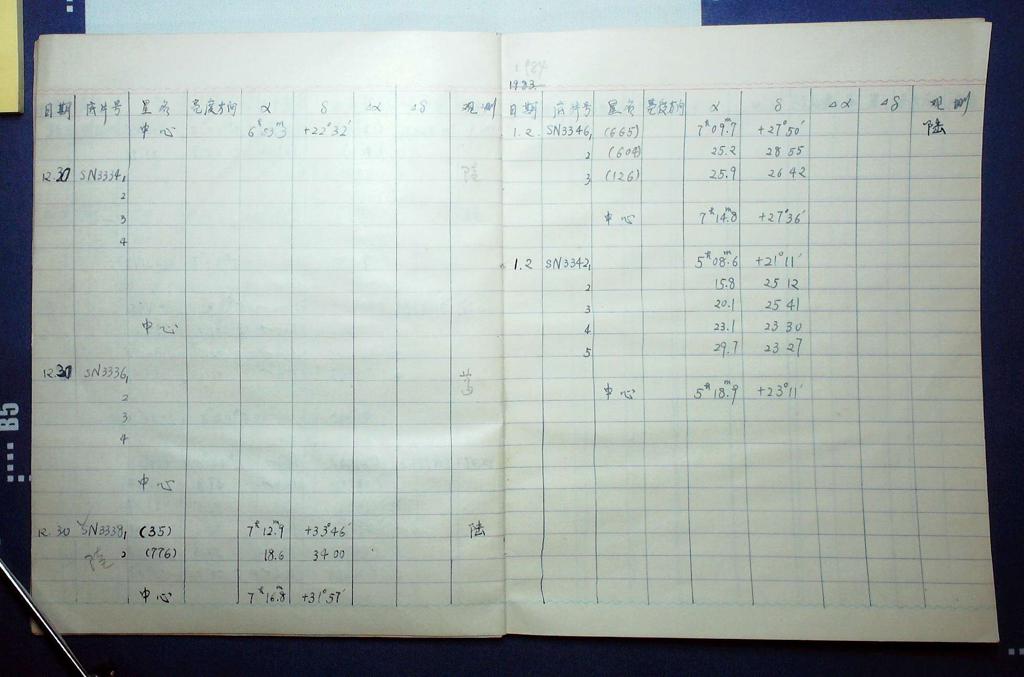 日期 底片号 星名 亮度方向 α δ Δα Δδ 观测
中心 6ʰ53ᵐ.3 +22°32′
12.30 SN3334,1 陆
2
3
4
中心
12.30 SN3336,1
2
3
4
中心
12.30 SN3339,1 (35) 7ʰ12ᵐ.9 +33°46′ 陆
陆 2 (776) 18.6 34 00
中心 7ʰ16ᵐ.8 +31°57′
1984
1983
日期 底片号 星名 亮度方向 α δ Δα Δδ 观测
1.2 SN3346,1 (665) 7ʰ09ᵐ.7 +27°50′ 陆
2 (604) 25.2 28 55
3 (126) 25.9 26 42
中心 7ʰ14ᵐ.8 +27°36′
1.2 SN3342,1 5ʰ08ᵐ.6 +21°11′
2 15.8 25 12
3 20.1 25 41
4 23.1 23 30
5 29.7 23 27
中心 5ʰ18ᵐ.9 +23°11′
B5